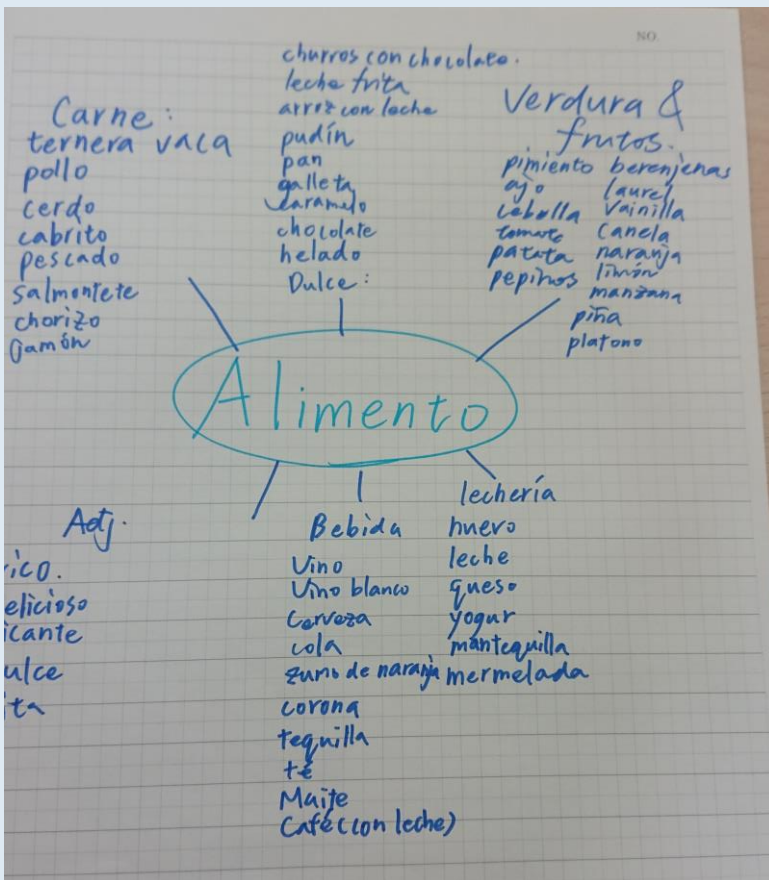 NO.
Carne:
ternera vaca
pollo
cerdo
cabrito
pescado
salmontete
chorizo
Jamón
churros con chocolate.
leche frita
arroz con leche
pudín
pan
galleta
caramelo
chocolate
helado
Dulce:
Verdura &
frutos.
pimiento berenjenas
ajo laurel
cebolla vainilla
tomate canela
patata naranja
pepinos limón
manzana
piña
platono
Alimento
Adj.
ico.
elicioso
icante
ulce
ita
Bebida
Vino
Vino blanco
Cerveza
cola
zumo de naranja
corona
tequilla
té
Maite
Café (con leche)
lechería
huevo
leche
queso
yogur
mantequilla
mermelada